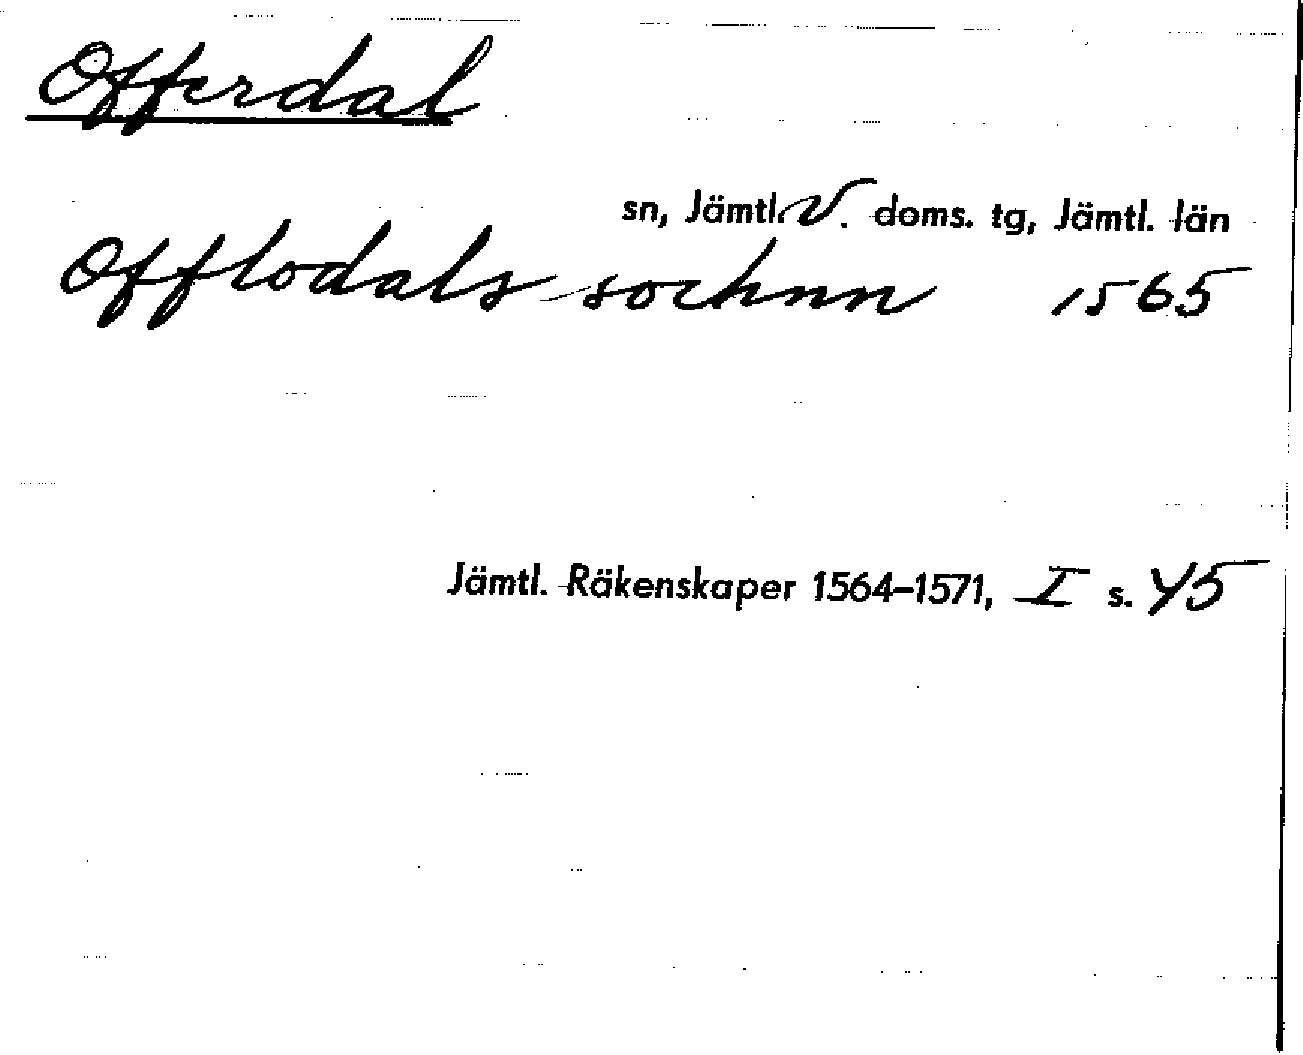 Offerdal
sn, Jämtl. V. doms. tg, Jämtl. län
Offlodals sochnn 1565
Jämtl. Räkenskaper 1564–1571, I s. 45